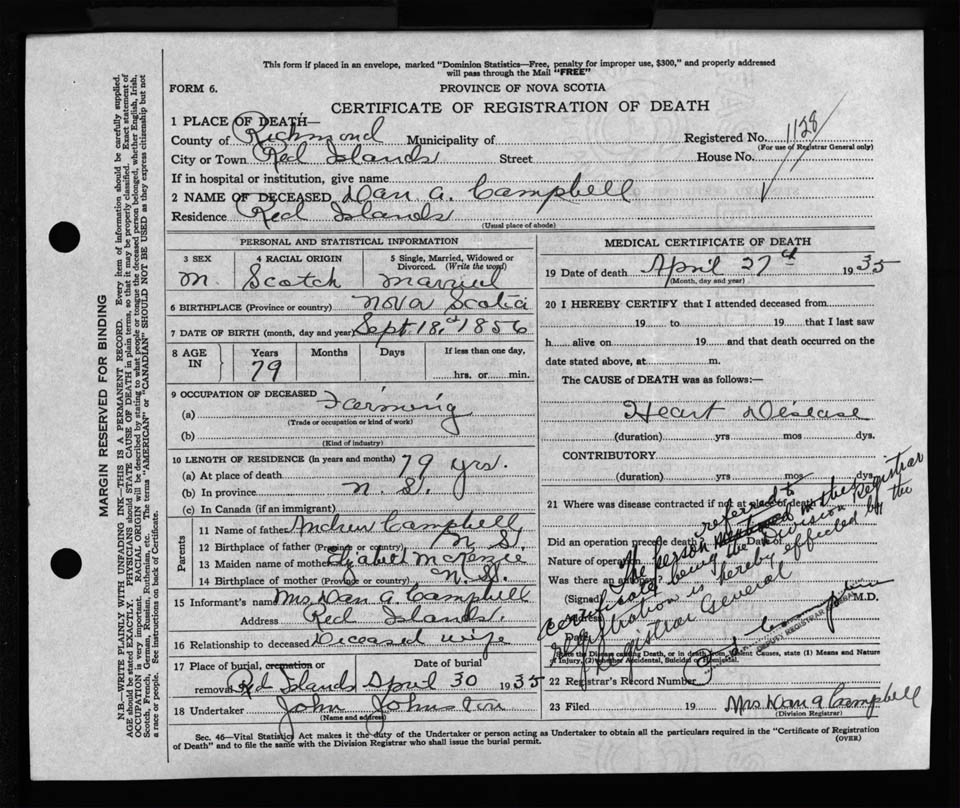 This form if placed in an envelope, marked "Dominion Statistics—Free, penalty for improper use, $300," and properly addressed
will pass through the Mail "FREE"
FORM 6.
PROVINCE OF NOVA SCOTIA
CERTIFICATE OF REGISTRATION OF DEATH
1 PLACE OF DEATH—
County of Richmond Municipality of Registered No. 1128
(For use of Registrar General only)
City or Town Red Islands Street House No.
If in hospital or institution, give name
2 NAME OF DECEASED Dan A. Campbell
Residence Red Islands
(Usual place of abode)
PERSONAL AND STATISTICAL INFORMATION
3 SEX 4 RACIAL ORIGIN 5 Single, Married, Widowed or Divorced. (Write the word)
M. Scotch Married
6 BIRTHPLACE (Province or country) Nova Scotia
7 DATE OF BIRTH (month, day and year) Sept. 18, 1856
8 AGE IN Years Months Days If less than one day,
79 hrs. or min.
9 OCCUPATION OF DECEASED Farming
(a)
(Trade or occupation or kind of work)
(b)
(Kind of industry)
10 LENGTH OF RESIDENCE (in years and months) 79 yrs.
(a) At place of death
(b) In province N. S.
(c) In Canada (if an immigrant)
Parents
11 Name of father Andrew Campbell
12 Birthplace of father (Province or country) N. S.
13 Maiden name of mother McKenzie
14 Birthplace of mother (Province or country) N. S.
15 Informant's name Mrs Dan A. Campbell
Address Red Islands.
16 Relationship to deceased Deceased wife
17 Place of burial, cremation or removal Red Islands Date of burial April 30 1935
18 Undertaker John Johnston
(Name and address)
MEDICAL CERTIFICATE OF DEATH
19 Date of death April 27th 1935
(Month, day and year)
20 I HEREBY CERTIFY that I attended deceased from
19 to 19 that I last saw
h alive on 19 and that death occurred on the
date stated above, at m.
The CAUSE OF DEATH was as follows:—
Heart Disease
(duration) yrs mos dys.
CONTRIBUTORY
(duration) yrs mos dys.
21 Where was disease contracted if not at place of death
Did an operation precede death? Date
Nature of operation
Was there an autopsy?
(Signed) M.D.
Date
State the Disease causing Death, or in death from Violent Causes, state (1) Means and Nature
of Injury, (2) whether Accidental, Suicidal or Homicidal.
The person referred to in the
certificate being the Division Registrar
registration is hereby effected by the
Registrar General
DEPUTY REGISTRAR GENERAL
22 Registrar's Record Number
23 Filed 19 Mrs Dan A Campbell
(Division Registrar)
Sec. 46—Vital Statistics Act makes it the duty of the Undertaker or person acting as Undertaker to obtain all the particulars required in the "Certificate of Registration
of Death" and to file the same with the Division Registrar who shall issue the burial permit.
(OVER)
MARGIN RESERVED FOR BINDING
N.B.—WRITE PLAINLY WITH UNFADING INK—THIS IS A PERMANENT RECORD. Every item of information should be carefully supplied.
AGE should be stated EXACTLY. PHYSICIANS should STATE CAUSE OF DEATH in plain terms, so that it may be properly classified. Exact statement of
OCCUPATION is very important. RACIAL ORIGIN will be described by stating to what people or tongue the deceased person belonged, whether English, Irish,
Scotch, French, German, Russian, Ruthenian, etc. The terms "AMERICAN" or "CANADIAN" SHOULD NOT BE USED as they express citizenship but not
a race or people. See instructions on back of Certificate.